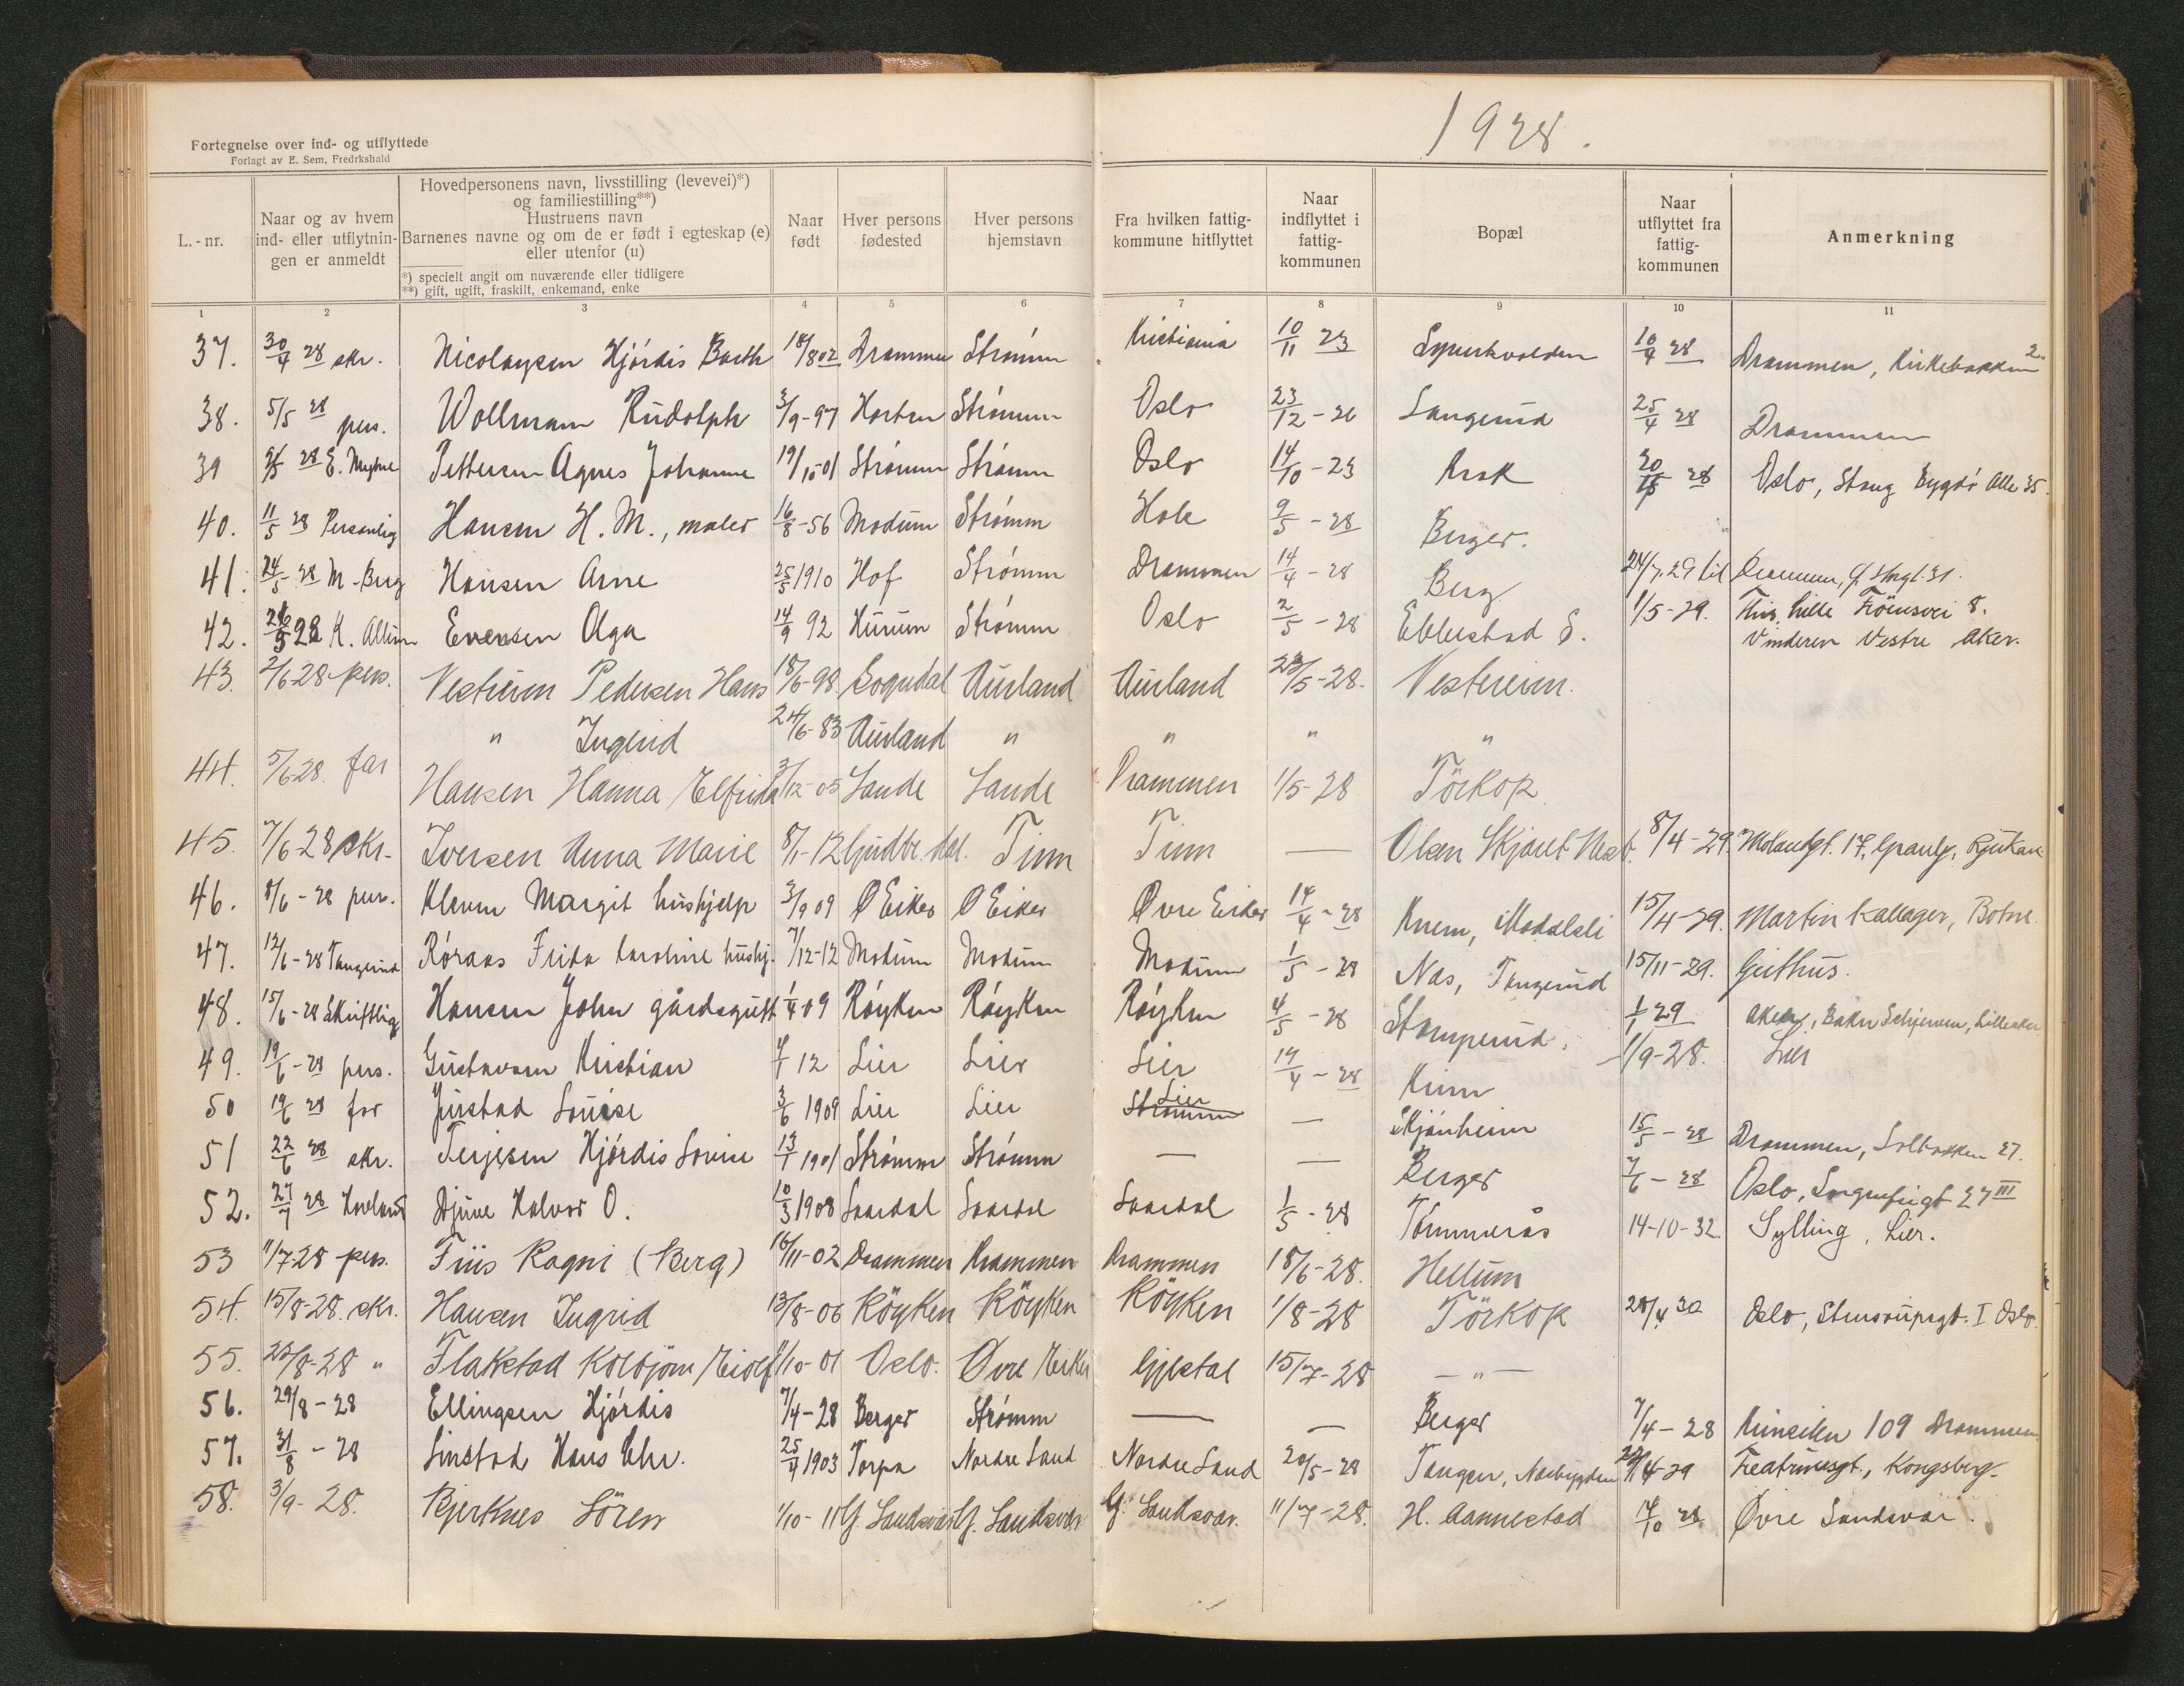 1928.
Fortegnelse over ind- og utflyttede
Forlagt av E. Sem, Fredrkshald
L.-nr.
Naar og av hvem ind- eller utflytningen er anmeldt
Hovedpersonens navn, livsstilling (levevei)*)
og familiestilling**)
Hustruens navn
Barnenes navne og om de er født i egteskap (e)
eller utenfor (u)
*) specielt angit om nuværende eller tidligere
**) gift, ugift, fraskilt, enkemand, enke
Naar født
Hver persons fødested
Hver persons hjemstavn
Fra hvilken fattig-kommune hitflyttet
Naar indflyttet i fattig-kommunen
Bopæl
Naar utflyttet fra fattig-kommunen
Anmerkning
1 2 3 4 5 6 7 8 9 10 11
37. 30/4 28 skr. Nicolaysen Hjördis Barth 18/8 02 Drammen Strömm Kristiania 10/11 23 10/4 28 Drammen, Kirkebakken 2
38. 5/5 28 pers. Wollmann Rudolph 3/9-97 Horten Strömm Oslo 23/12-26 Langerud 25/4 28 Drammen
39 28 E. Pettersen Agnes Johanne 19/10-01 Strömm Strömm Oslo 14/10-23 Krok 28 Oslo, Bygdö Alle 35.
40. 11/5 28 Personlig Hansen H. M., maler 16/8-56 Modum Strömm Hole 9/5-28 Berger.
41. 24/5-28 M. Berg Hansen Arne 25/5 1910 Hof Strömm Drammen 14/4-28 Berg 24/7.29 til Drammen,
42. 26/5 28 K. Evensen Olga 14/9 92 Hurum Strömm Oslo 2/5-28 Ebbestad S. 1/5-29. Fröensvei 8.
Vinderen Vestre Aker.
43. 2/6 28 pers. Vestreim Pedersen Hans 18/6-98. Sogndal Aurland Aurland 23/5-28. Vestreim.
" Ingerid 24/6-83 Aurland " " " "
44. 5/6 28. far Hansen Hanna Elfrida 3/12-05 Sande Sande Drammen 1/5-28 Törkop
45. 7/6-28 skr. Iversen Anna Marie 8/1-12 Gudbr.dal. Tinn Tinn — Olsen Skjöret Nesb. 8/4-29. Rjukan
46. 8/6-28 pers. Kleven Margit hushjelp 3/9 09 Ø Eiker Ø Eiker Øvre Eiker 14/4-28 Knem, 15/4-29. Martin Kallager, Botne
47. 12/6-28 Tangerud Röraas Frida Karoline hushj. 7/12-12 Modum Modum Modum 1/5-28 Nes, Tangerud 15/11-29. Geithus.
48. 15/6-28 Skriftlig Hansen John gårdsgutt 1/4 09 Röyken Röyken Röyken 4/5-28 Stamperud. 1/1 29 Aker,
49. 19/6-28 pers. Gustavsen Kristian 12 Lier Lier Lier 14/4-28 Kinn 1/9-28. Lier
50 19/6 28 far Justad Louise 3/6 1909 Lier Lier Strömm Lier — Skjönheim 15/5-28 Drammen, Solbakken 27.
51 22/6 28 skr. Terjesen Hjördis Lovise 13/1 1901 Strömm Strömm — — Berger 7/6-28 Oslo, 27 III
52. 27/7 28 Djuve Halvor O. 10/3 1908 Saardal 1/5-28 Tömmerås 14-10-32. Sylling, Lier.
53 11/7 28 pers. Friis Ragni (Berg) 16/11-02 Drammen Drammen Drammen 18/6-28. Hellum
54. 15/8-28. skr. Hansen Ingrid 13/8-06 Röyken Röyken Röyken 1/8-28 Törkop 28/4 30 Oslo, Stensrupsgt. I Oslo.
55. 25/8-28 " Flakstad Kolbjörn Eiolf 1/10-01 Oslo. Øvre Eiker Gjestal 15/7-28 — " —
56. 29/8-28 Ellingsen Hjördis 7/4-28 Berger Strömm — — Berger 7/4-28 109 Drammen
57. 31/8-28 Linstad Hans Chr. 25/4 1903 Torpa Nordre Land Nordre Land 20/5-28 Tangen, Nesbygden Teatersgt., Kongsberg.
58. 3/9-28. Bjerknes Sören 1/10-11 Y. Sandsvær Y. Sandsvær Y. Sandsvær. 11/7-28. H. Aannestad 14/10 28 Øvre Sandsvær.